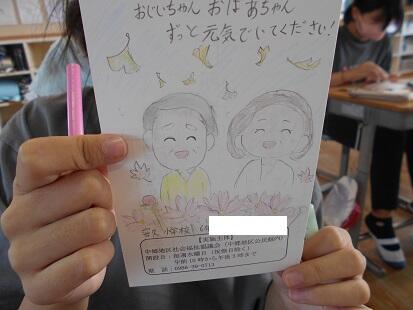 おじいちゃん おばあちゃん
ずっと元気でいてください!
小学校
【実施主体】
中郷地区社会福祉協議会(中郷地区公民館内)
開設日:毎週水曜日(祝祭日除く)
午前10時から午後3時まで
電 話:0986-36-0713